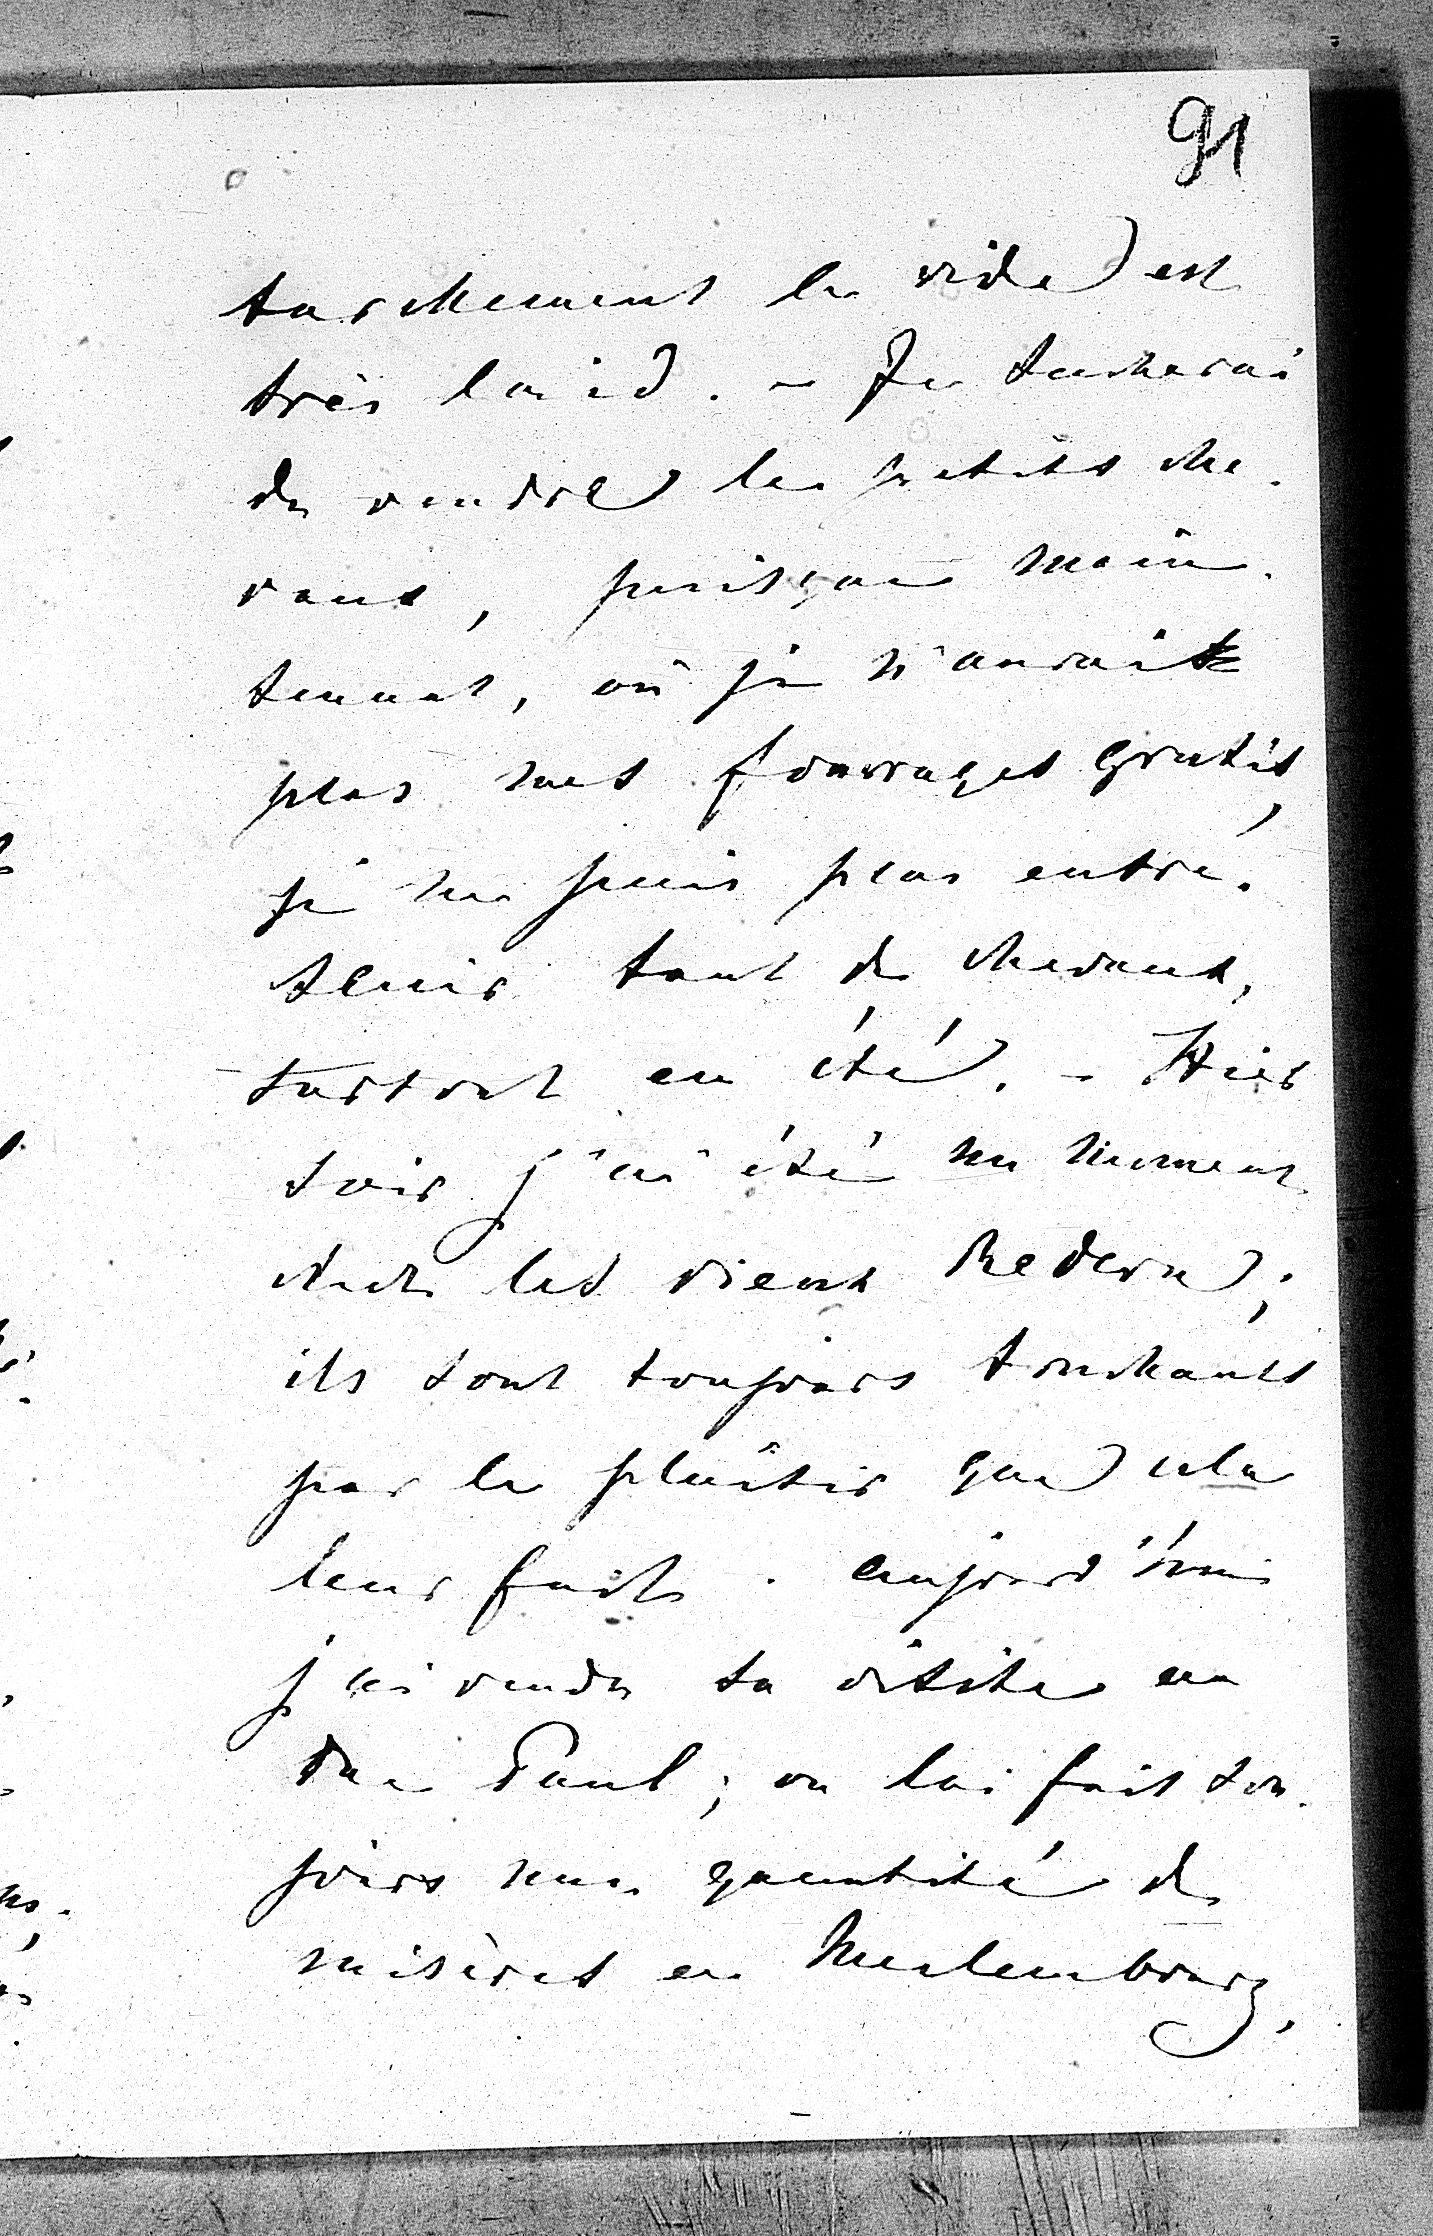 91
tachement le vide est
très laid. – Je tacherai
de vendre les petits che-
vaux, puisque main-
tenant, où je n'aurai
plus mes fourrages gratis,
je ne puis plus entre-
tenir tant de chevaux,
surtout en été. – Hier
soir j'ai été un moment
chez les vieux Redern;
ils sont toujours touchants
par le plaisir que cela
leur fait. aujourd'hui
j'ai rendu sa visite au
duc Paul; on lui fait tou-
jours une quantité de
misères en Meclembourg,